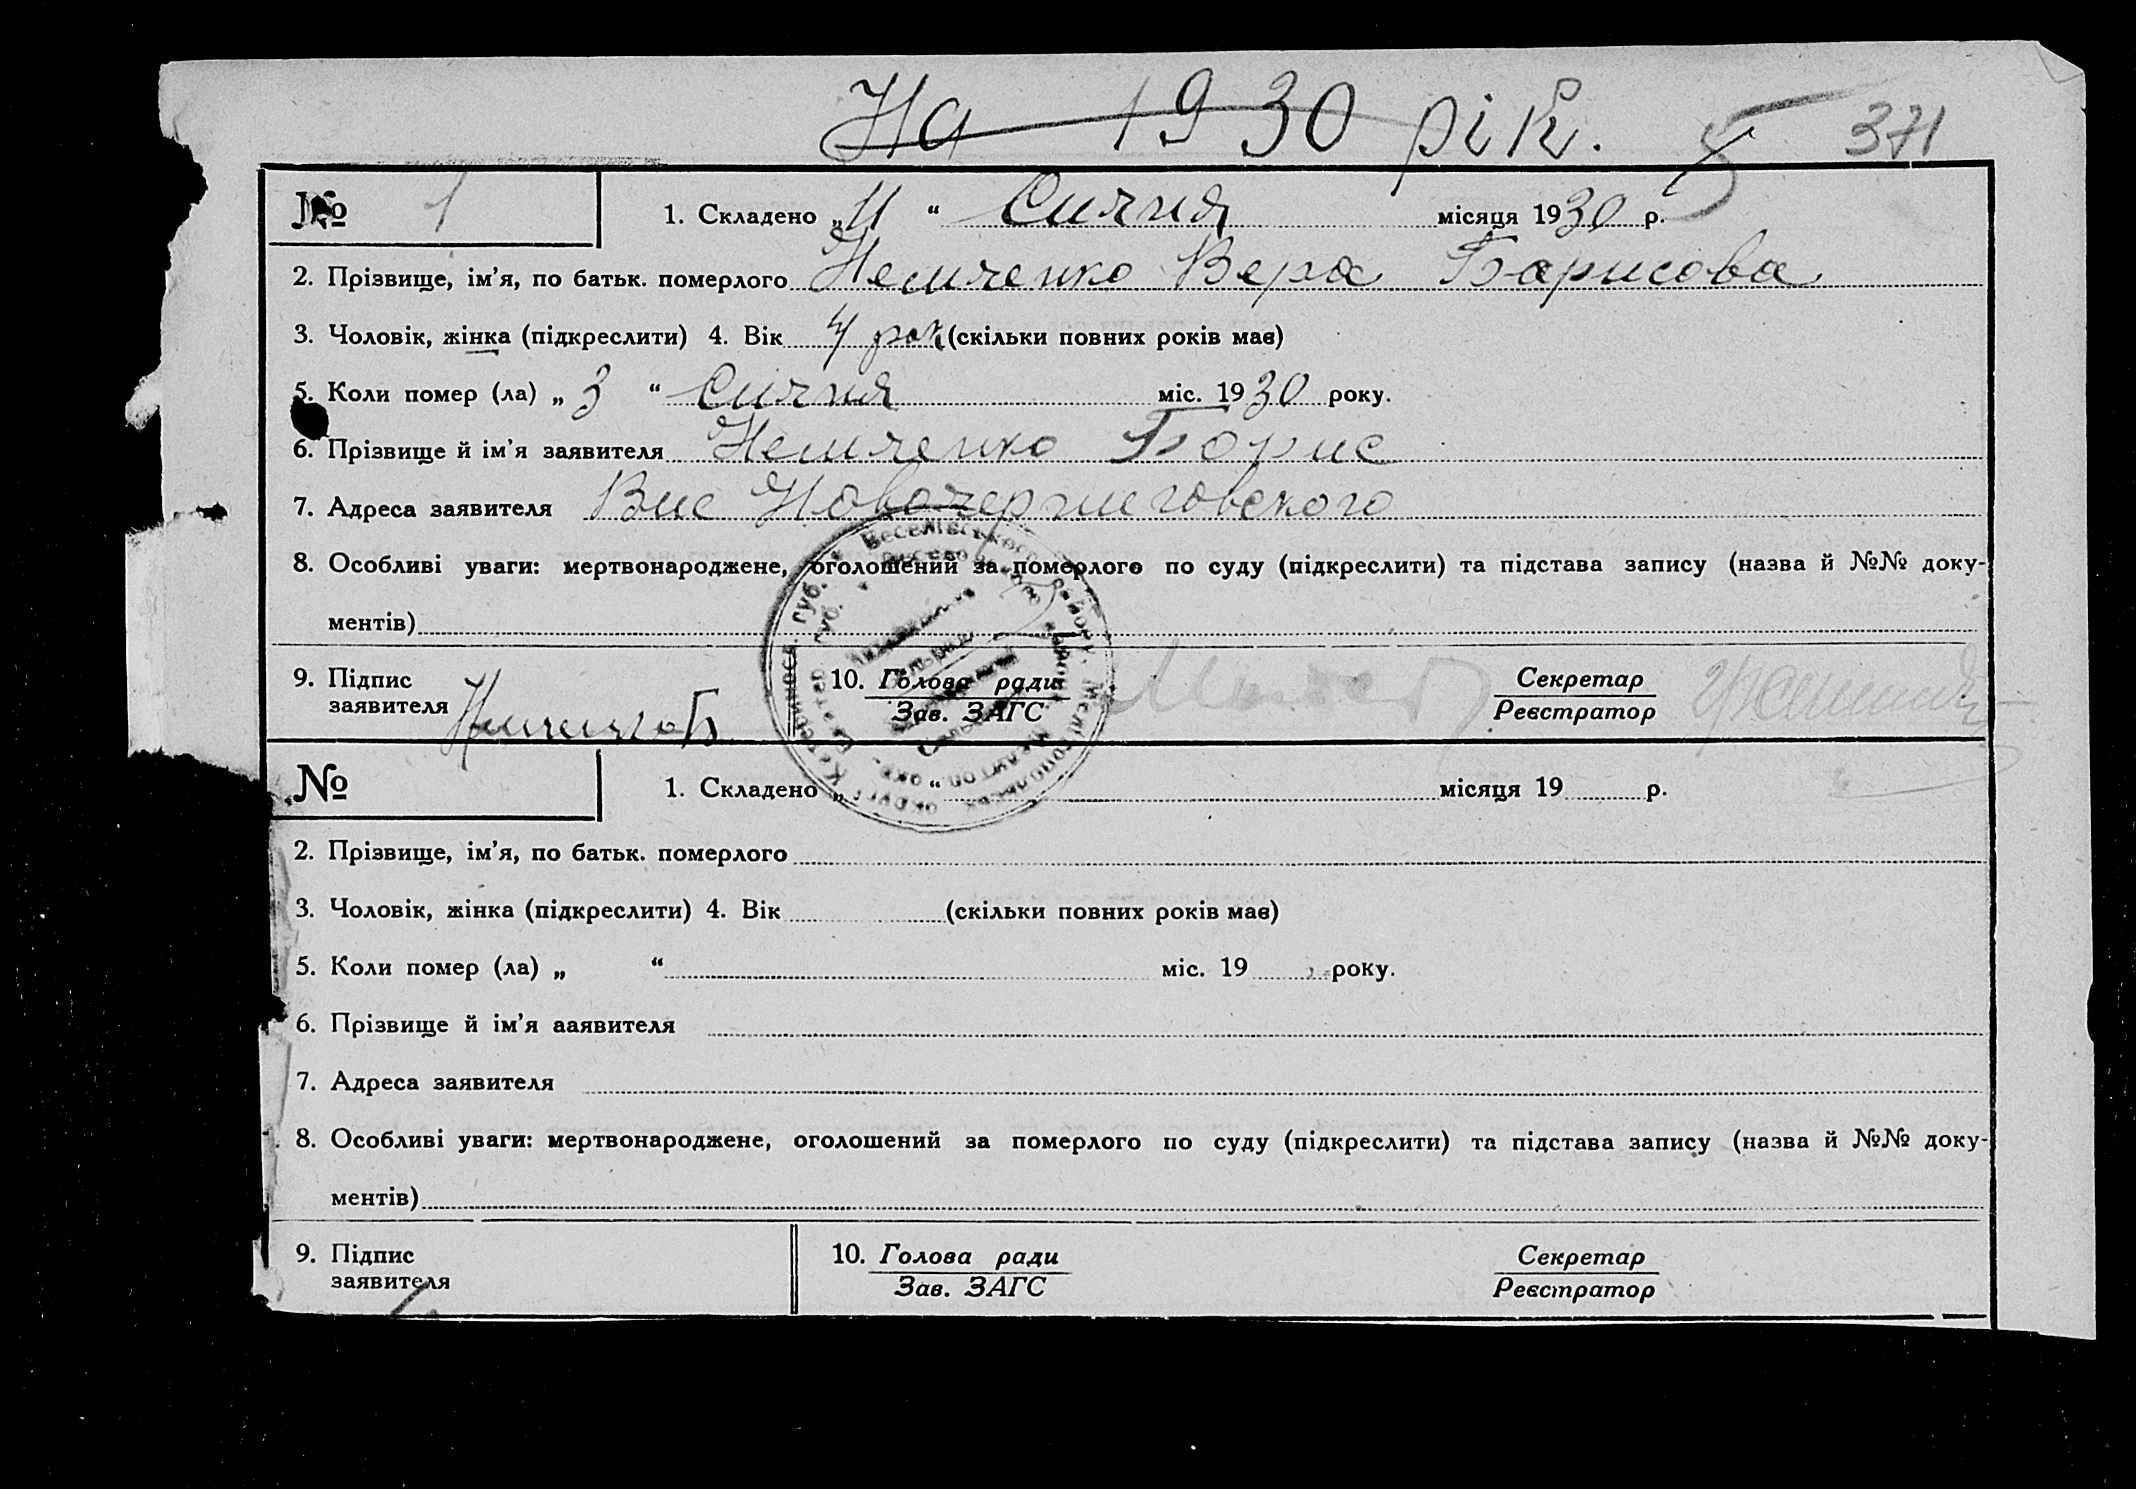 На 1930 рік. 5 371
№ 1 1. Складено „11“ Сичня місяця 1930 р.
2. Прізвище, ім’я, по батьк. померлого Немченко Вера Барисова
3. Чоловік, жінка (підкреслити) 4. Вік 4 рок (скільки повних років має)
5. Коли помер (ла) „3“ Сичня міс. 1930 року.
6. Прізвище й ім’я заявителя Немченко Борис
7. Адреса заявителя Вис
8. Особливі уваги: мертвонароджене, оголошений за померлого по суду (підкреслити) та підстава запису (назва й №№ доку-
ментів)
9. Підпис заявителя 10. Голова ради Секретар
Зав. ЗАГС Реєстратор
№ 1. Складено „ “ місяця 19 р.
2. Прізвище, ім’я, по батьк. померлого
3. Чоловік, жінка (підкреслити) 4. Вік (скільки повних років має)
5. Коли помер (ла) „ “ міс. 19 року.
6. Прізвище й ім’я ааявителя
7. Адреса заявителя
8. Особливі уваги: мертвонароджене, оголошений за померлого по суду (підкреслити) та підстава запису (назва й №№ доку-
ментів)
9. Підпис заявителя 10. Голова ради Секретар
Зав. ЗАГС Реєстратор